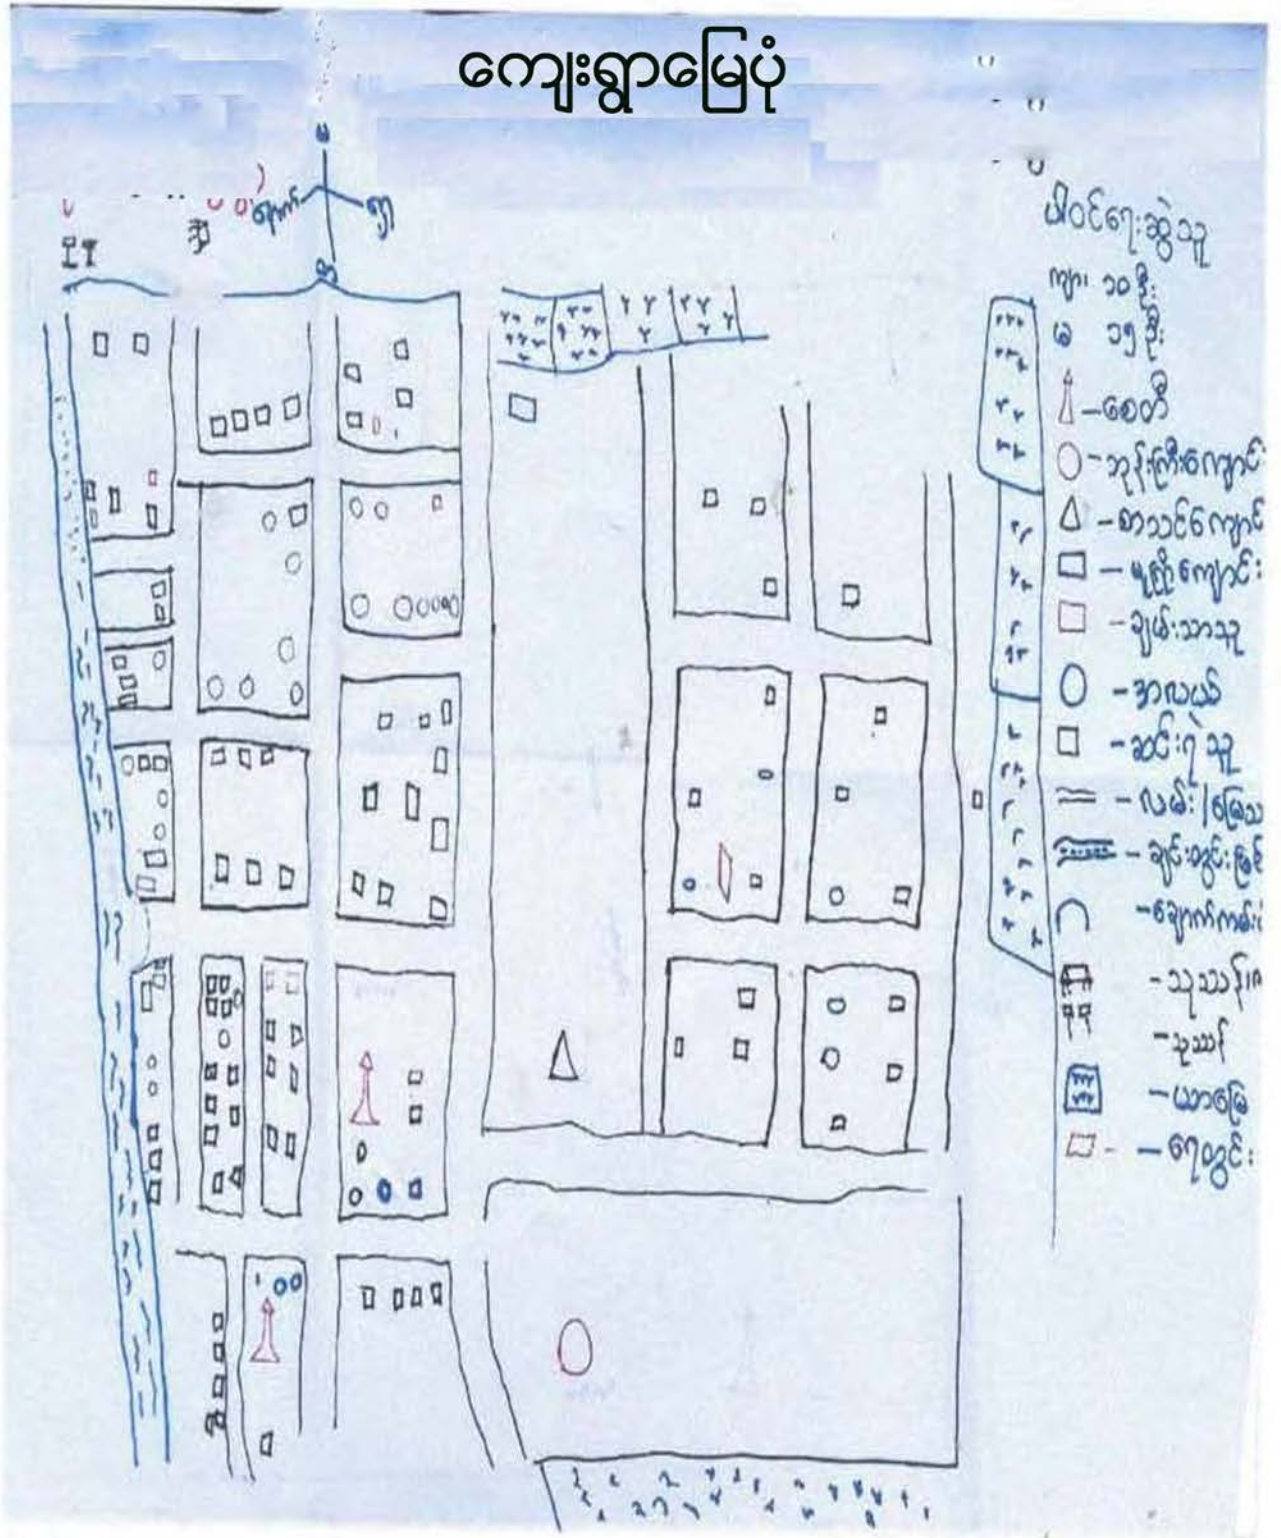 ကျေးရွာမြေပုံ
မ
နောက်
ရှေ့
တ
ပါဝင်ရေးဆွဲသူ
ကျား ၁၀ ဦး
မ ၁၅ ဦး
-စေတီ
-ဘုန်းကြီးကျောင်း
-စာသင်ကျောင်း
-မူကြိုကျောင်း
-ချမ်းသာသူ
-အလယ်
-ဆင်းရဲသူ
-လမ်း/မြေသ
-ချင်းတွင်းမြစ်
-ချောက်ကမ်း
-သုဿန်
-သုဿန်
-ယာမြေ
-ရေတွင်း